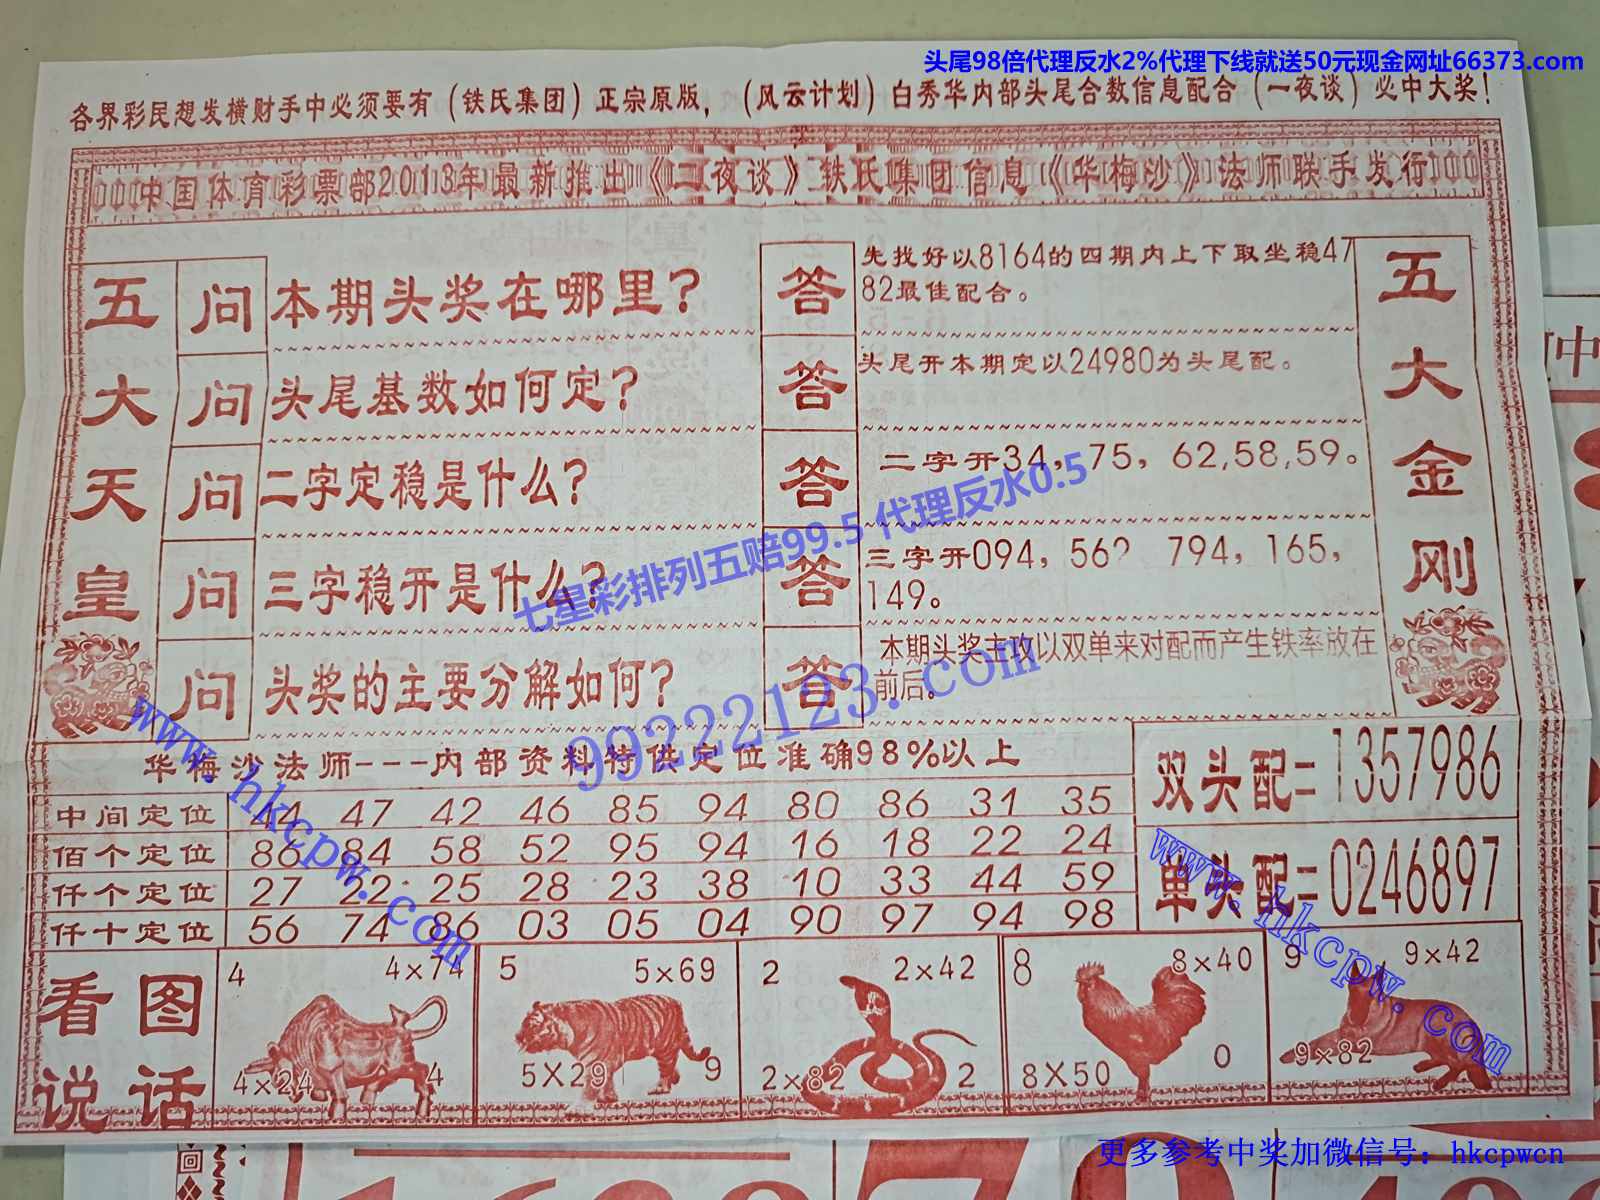 头尾98倍代理反水2%代理下线就送50元现金网址66373.com
各界彩民想发横财手中必须要有（铁氏集团）正宗原版，（风云计划）白秀华内部头尾合数信息配合（一夜谈）必中大奖！
中国体育彩票部2013年最新推出《二夜谈》铁氏集团信息《华梅沙》法师联手发行
五大天皇
问 本期头奖在哪里？
答 先找好以8164的四期内上下取坐稳47
82最佳配合。
问 头尾基数如何定？
答 头尾开本期定以24980为头尾配。
问 二字定稳是什么？
答 二字开34，75，62,58,59。
问 三字稳开是什么？
答 三字开094，562 794，165，
149。
问 头奖的主要分解如何？
答 本期头奖主攻以双单来对配而产生铁率放在
前后。
五大金刚
七星彩排列五赔99.5 代理反水0.5
99222123.com
www.hkcpw.com
www.hkcpw.com
华梅沙法师---内部资料特供定位准确98%以上
中间定位 44 47 42 46 85 94 80 86 31 35
佰个定位 86 84 58 52 95 94 16 18 22 24
仟个定位 27 22 25 28 23 38 10 33 44 59
仟十定位 56 74 86 03 05 04 90 97 94 98
双头配=1357986
单头配=0246897
看图
说话
4 4×74
4×24 4
5 5×69
5×29 9
2 2×42
2×82 2
8 8×40
8×50 0
9 9×42
9×82
更多参考中奖加微信号：hkcpwcn